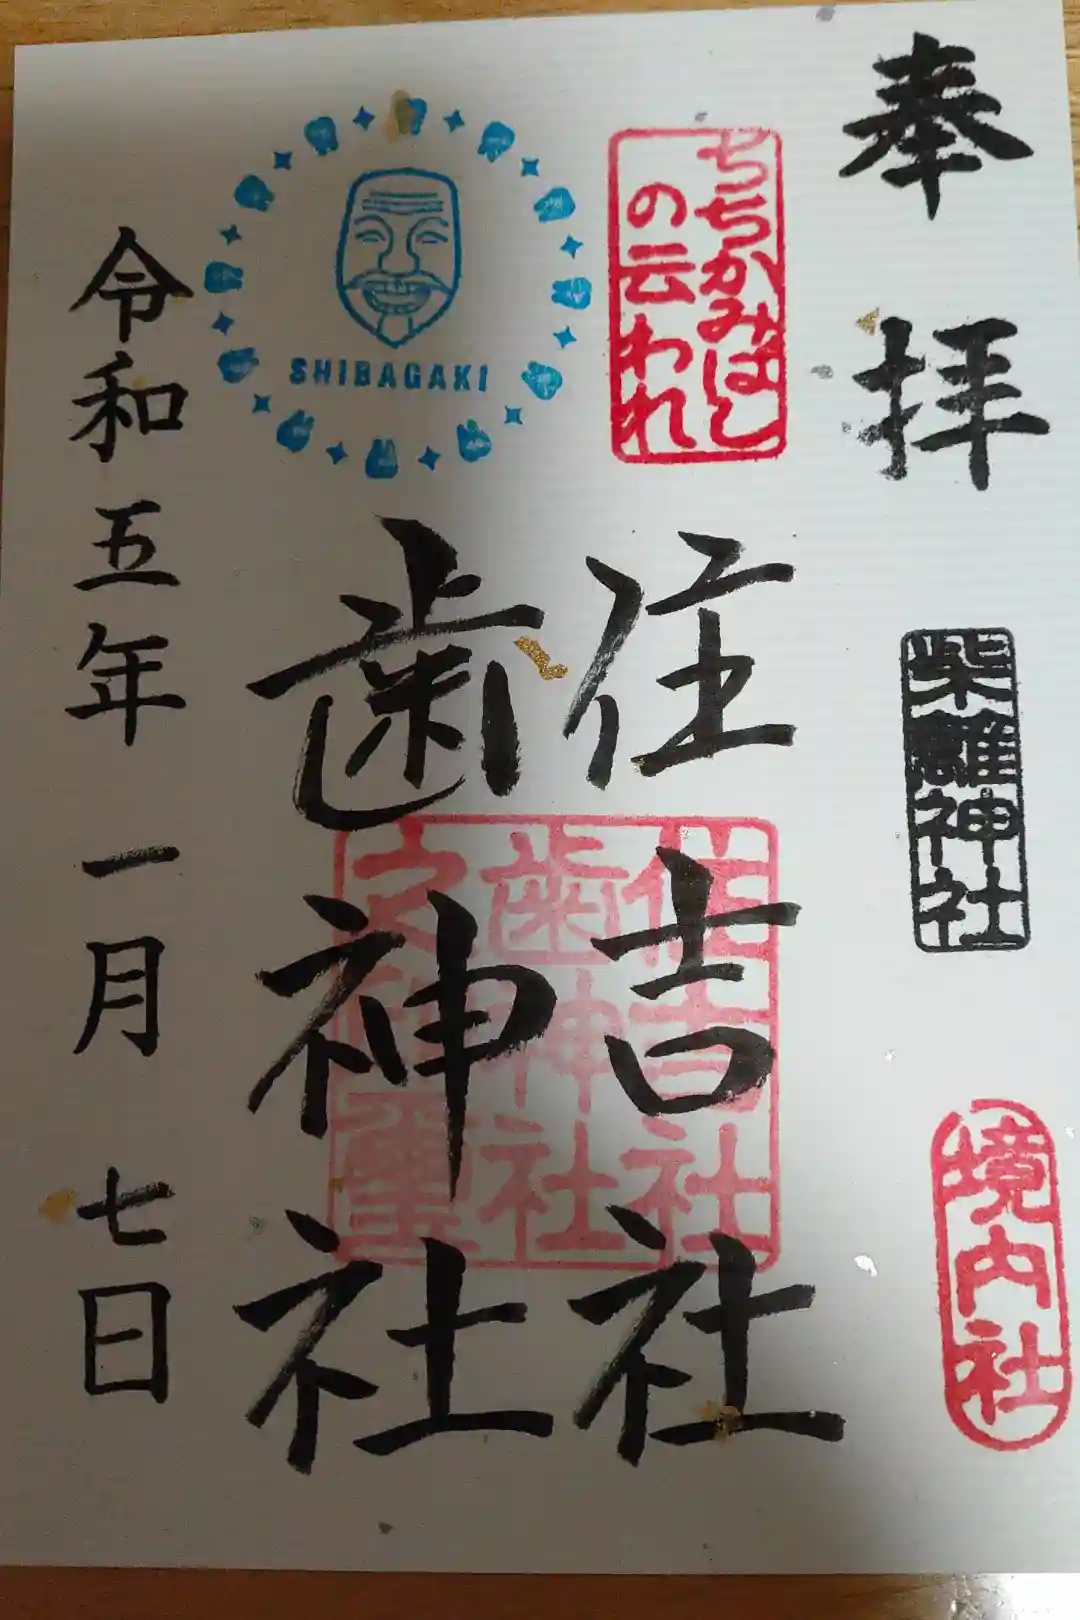 奉拝
柴籬神社
境内社
ちちかみばし
の云われ
住吉社
歯神社
住吉社
歯神社
之印璽
SHIBAGAKI
令和五年一月七日